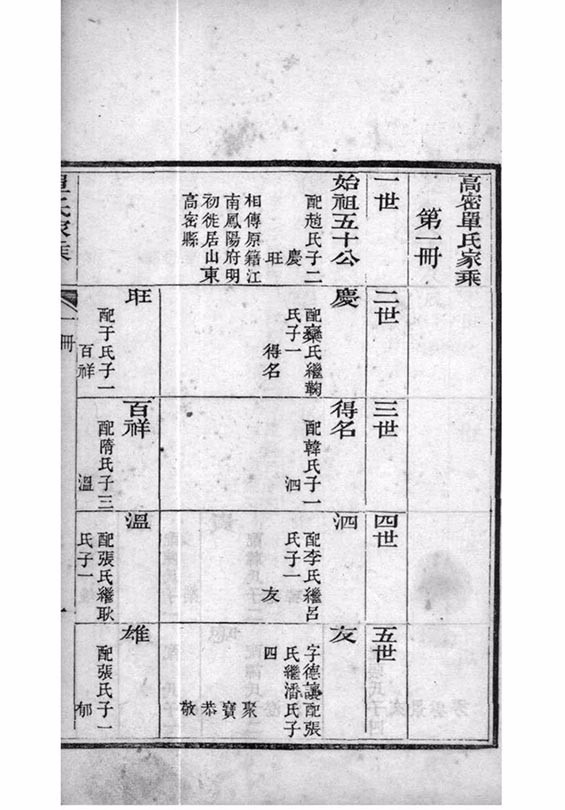 高密單氏家乘
第一冊
一世
始祖五十公
配趙氏子二
慶
旺
相傳原籍江
南鳳陽府明
初徙居山東
高密縣
二世
慶
配欒氏繼鞠
氏子一
得名
旺
配于氏子一
百祥
三世
得名
配韓氏子一
泗
百祥
配隋氏子三
溫
四世
泗
配李氏繼呂
氏子一
友
溫
配張氏繼耿
氏子一
五世
友
字德讓配張
氏繼潘氏子
四
聚
寶
恭
敬
雄
配張氏子一
郁
單氏家乘
一冊
一